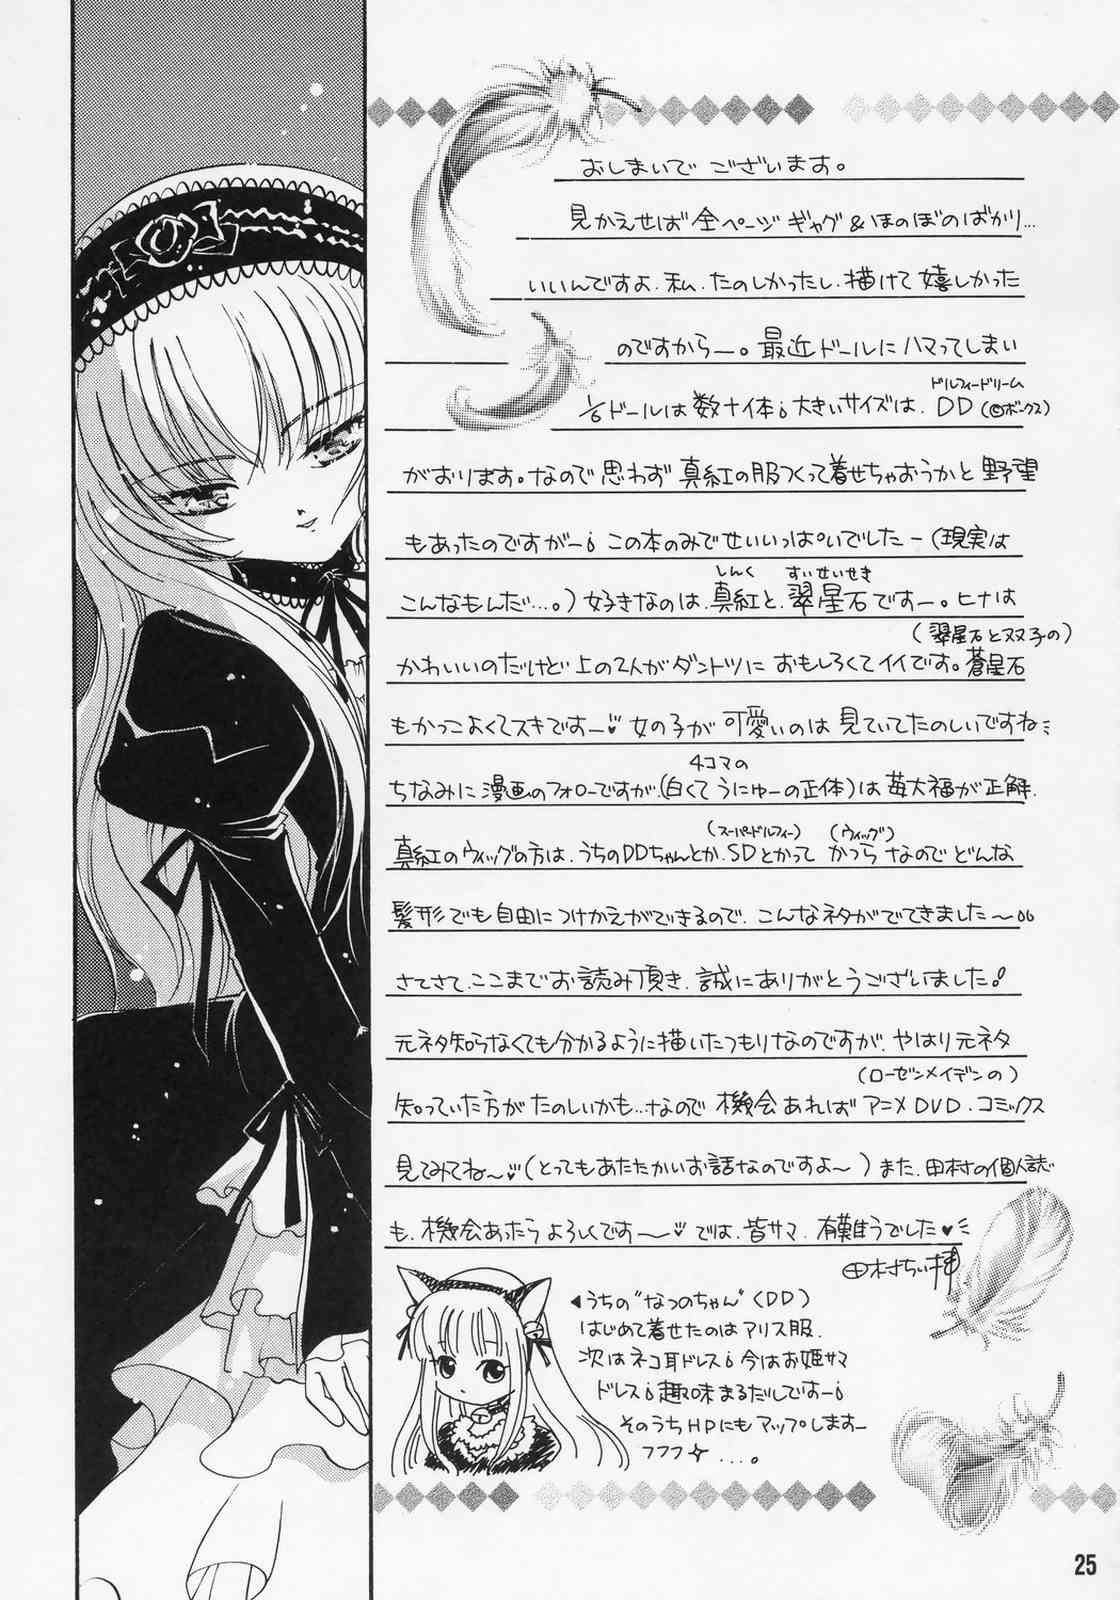 おしまいで ございます。
見かえせば 全ページ ギャグ&ほのぼのばかり…
いいんですよ.私.たのしかったし.描けて 嬉しかった
のですからー。最近ドールにハマってしまい
ドルフィードリーム
1/6ドールは 数十体!大きいサイズは、DD(©ボークス)
がおります。なので 思わず 真紅の服つくって着せちゃおうかと 野望
もあったのですがー!この本のみでせいいっぱいでしたー(現実は
しんく すいせいせき
こんなもんだ…。)好きなのは、真紅と、翠星石ですー。ヒナは
(翠星石と双子の)
かわいいのだけど 上の2人がダントツに おもしろくてイイです。蒼星石
もかっこよくてスキですー♥ 女の子が 可愛いのは 見ていてたのしいですね
4コマの
ちなみに 漫画のフォローですが、(白くて うにゅーの正体)は 苺大福が正解.
(スーパードルフィー) (ウィッグ)
真紅のウィッグの方は、うちのDDちゃんとか.SDとかって かつら なので どんな
髪形でも 自由に つけかえができるので、こんなネタがでてきました〜
さてさて、ここまでお読み頂き、誠にありがとうございました!
元ネタ知らなくても分かるように描いたつもりなのですが、やはり元ネタ
(ローゼンメイデンの)
知っていた方が たのしいかも…なので 機会あれば アニメDVD.コミックス
見てみてね〜♥(とってもあたたかいお話なのですよ〜)また、田村の個人誌
も、機会あったら よろしくです〜♥ では、皆サマ、有難うでした♥
田村ちい拝
◀うちの"なつのちゃん"(DD)
はじめて着せたのはアリス服.
次はネコ耳ドレス!今はお姫サマ
ドレス!趣味まるだしですー!
そのうちHPにもアップしますー
フフフ☆ …。
25